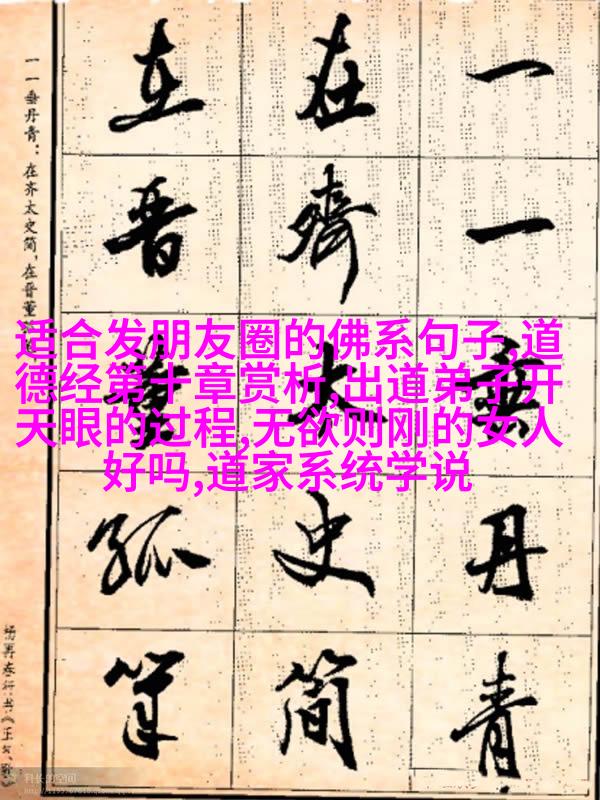 一一垂丹青
在齊太史简
在晋董狐筆
一一垂丹青：在齐太史简，在晋董
杨再春行书《正气歌
适合发朋友圈的佛系句子,道
德经第十章赏析,出道弟子开
天眼的过程,无欲则刚的女人
好吗,道家系统学说
科长的空间